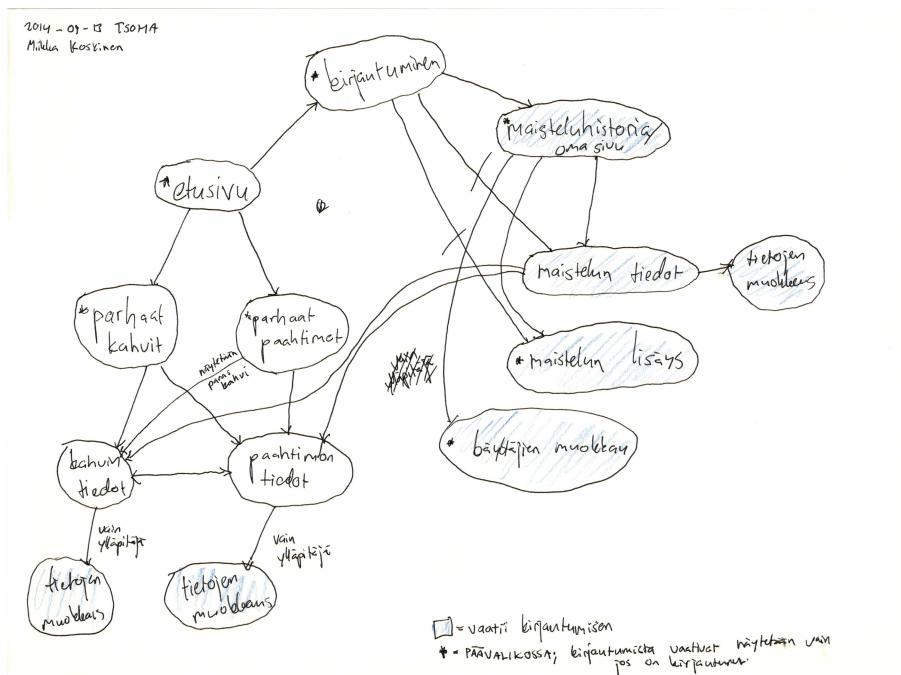 2014-09-13 TSOHA
Miikka Koskinen
* kirjautuminen
* maisteluhistoria,
oma sivu
* etusivu
maistelun tiedot
tietojen
muokkaus
* parhaat
kahvit
* parhaat
paahtimot
näytetään
paras
kahvi
vain
ylläpitäjä
* maistelun lisäys
* käyttäjien muokkau
kahvin
tiedot
paahtimon
tiedot
vain
ylläpitäjä
vain
ylläpitäjä
tietojen
muokkaus
tietojen
muokkaus
= vaatii kirjautumisen
* = PÄÄVALIKOSSA; kirjautumista vaativat näytetään vain
jos on kirjautunut.